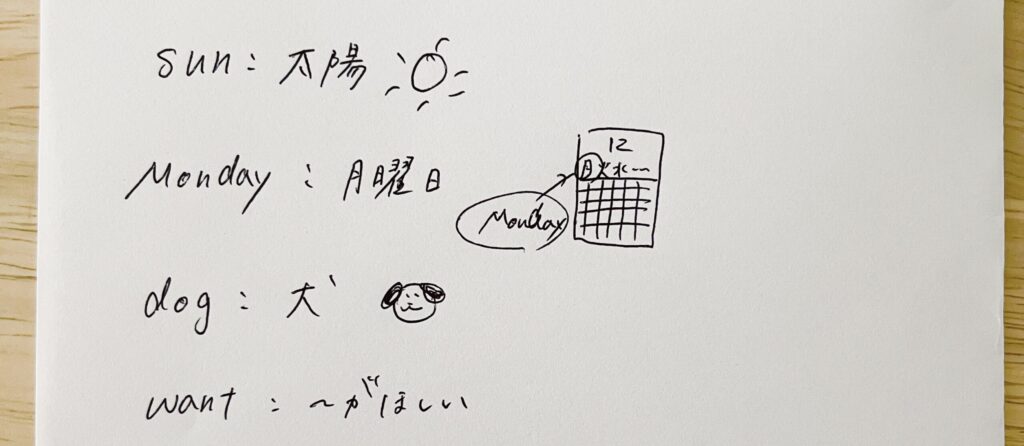 sun : 太陽
Monday : 月曜日
12
月火水
Monday
dog : 犬
want : ～がほしい